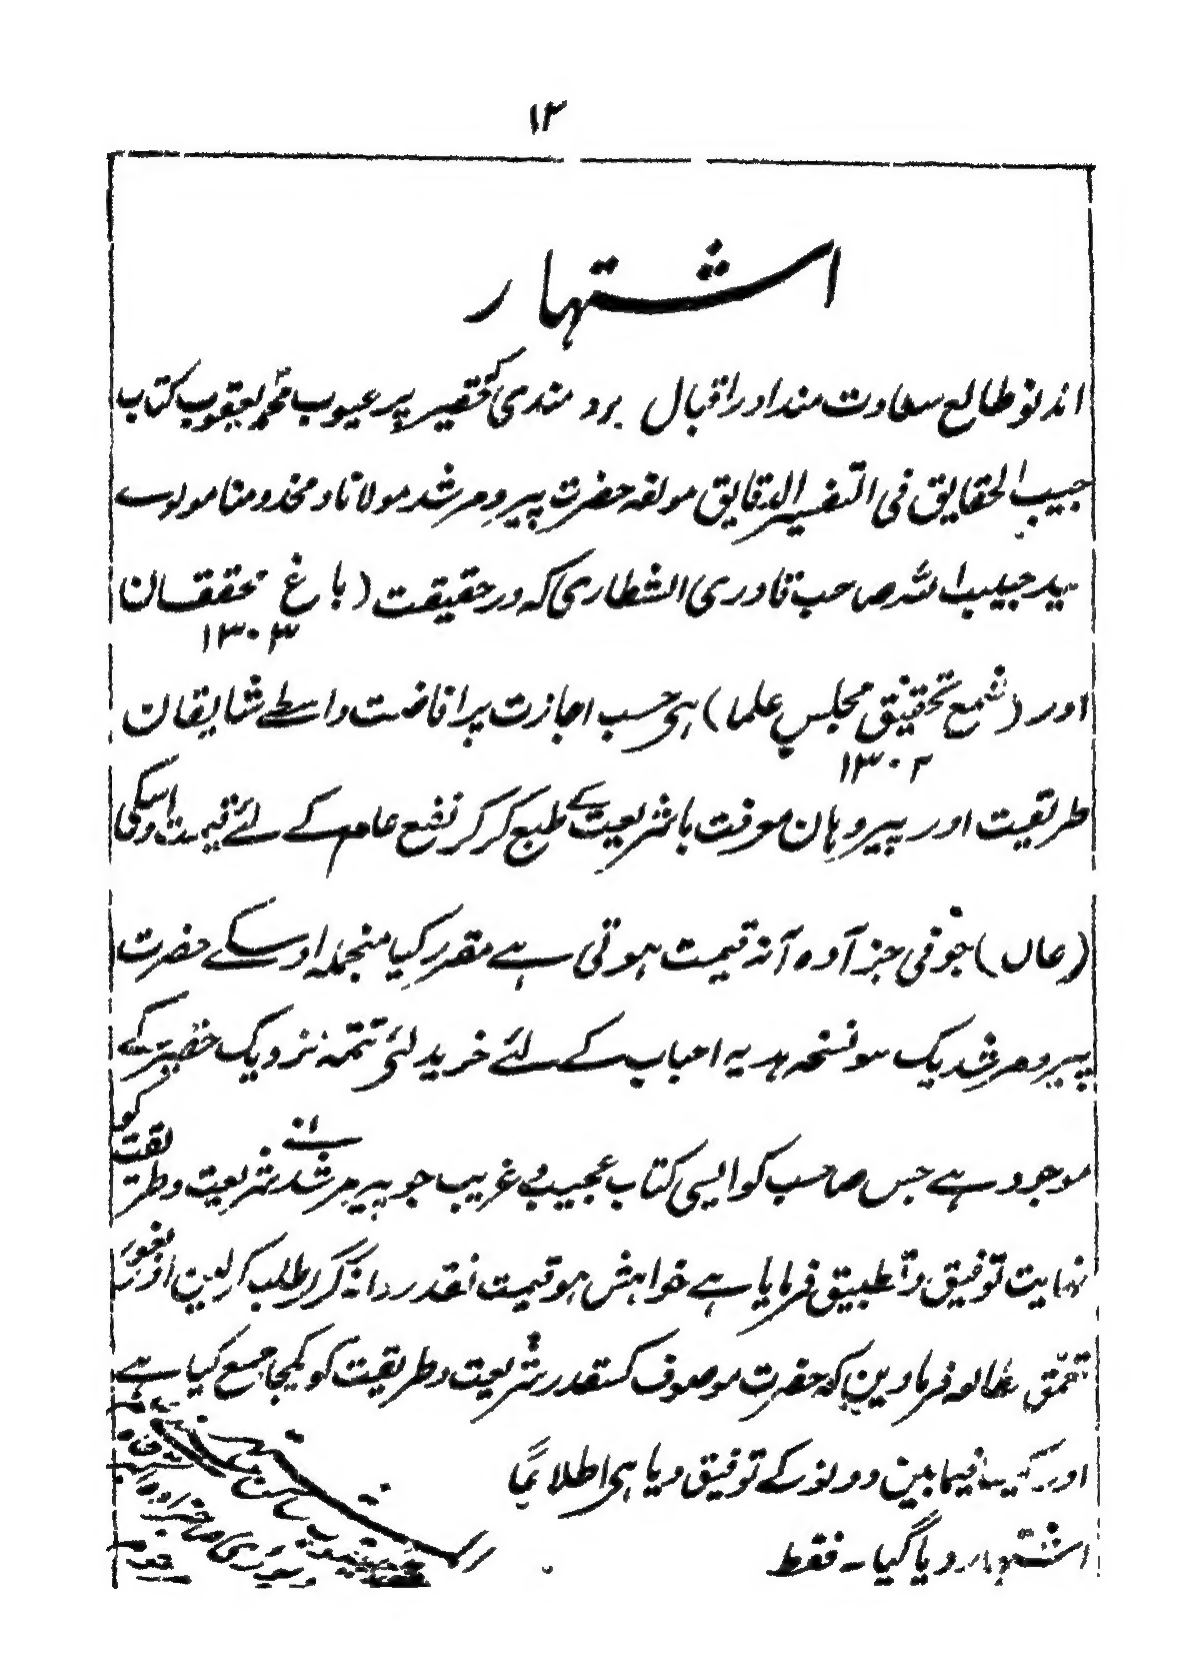 ۱۳
اشتہار
اندنو طالع سعادت مند اور اقبال برد مندی حقیر پر عیوب محمد یعقوب کتاب
حبیب الحقایق فی التفسیر الدقایق مولفہ حضرت پیر و مرشد مولانا و مخدومنا مولوی
سید حبیب اللہ صاحب قادری الشطاری کہ در حقیقت (باغ محققان
۱۳۰۳
اور (شمع تحقیق مجلس علما) ہی حسب اجازت پر افاضت واسطے شایقان
۱۳۰۲
طریقت اور پیروہان معرفت با شریعت کے طبع کر کر نفع عام کے لئے قیمت اوسکی
(عاں) جو فی جز آدہ آنہ قیمت ہوتی ہے مقرر کیا منجملہ اوسکے حضرت
پیر و مرشد یک سو نسخہ ہدیہ احباب کے لئے خرید لئی تتمہ نزدیک حقیر کے
موجود ہے جس صاحب کو ایسی کتاب عجیب و غریب جو پیر مرشد نے شریعت و طریقت کو
نہایت توفیق و تطبیق فرمایا ہے خواہش ہو قیمت نقد روانہ کر اطلب کر لین اور بغور
تعمق مطالعہ فرماوین کہ حضرت موصوف کسقدر شریعت و طریقت کو یکجا جمع کیا ہے
اور فیمابین دونو کے توفیق دیا ہی اطلاعاً
اشتہار دیا گیا ۔ فقط